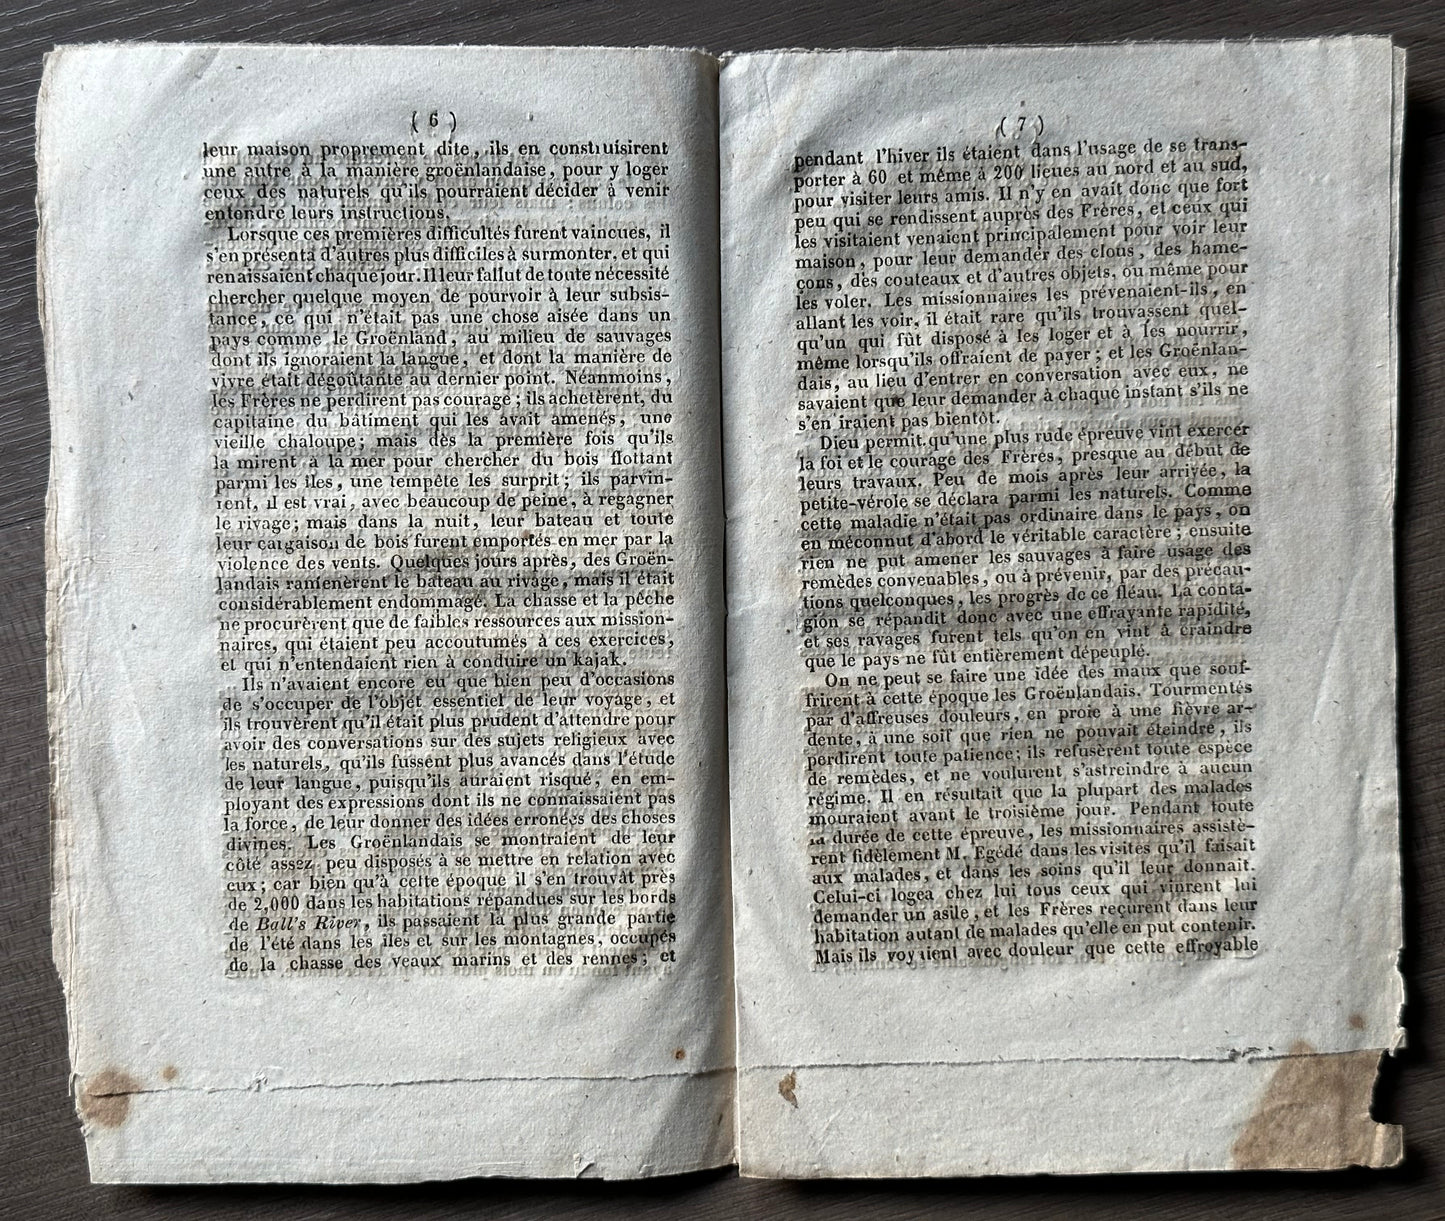 ( 6 )
leur maison proprement dite, ils en construisirent
une autre à la manière groënlandaise, pour y loger
ceux des naturels qu'ils pourraient décider à venir
entendre leurs instructions.
Lorsque ces premières difficultés furent vaincues, il
s'en présenta d'autres plus difficiles à surmonter, et qui
renaissaient chaque jour. Il leur fallut de toute nécessité
chercher quelque moyen de pourvoir à leur subsis-
tance, ce qui n'était pas une chose aisée dans un
pays comme le Groënland, au milieu de sauvages
dont ils ignoraient la langue, et dont la manière de
vivre était dégoûtante au dernier point. Néanmoins,
les Frères ne perdirent pas courage; ils achetèrent, du
capitaine du bâtiment qui les avait amenés, une
vieille chaloupe; mais dès la première fois qu'ils
la mirent à la mer pour chercher du bois flottant
parmi les îles, une tempête les surprit; ils parvin-
rent, il est vrai, avec beaucoup de peine, à regagner
le rivage; mais dans la nuit, leur bateau et toute
leur cargaison de bois furent emportés en mer par la
violence des vents. Quelques jours après, des Groën-
landais ramenèrent le bateau au rivage, mais il était
considérablement endommagé. La chasse et la pêche
ne procurèrent que de faibles ressources aux mission-
naires, qui étaient peu accoutumés à ces exercices,
et qui n'entendaient rien à conduire un kajak.
Ils n'avaient encore eu que bien peu d'occasions
de s'occuper de l'objet essentiel de leur voyage, et
ils trouvèrent qu'il était plus prudent d'attendre pour
avoir des conversations sur des sujets religieux avec
les naturels, qu'ils fussent plus avancés dans l'étude
de leur langue, puisqu'ils auraient risqué, en em-
ployant des expressions dont ils ne connaissaient pas
la force, de leur donner des idées erronées des choses
divines. Les Groënlandais se montraient de leur
côté assez peu disposés à se mettre en relation avec
eux; car bien qu'à cette époque il s'en trouvât près
de 2,000 dans les habitations répandues sur les bords
de Ball's River, ils passaient la plus grande partie
de l'été dans les îles et sur les montagnes, occupés
de la chasse des veaux marins et des rennes; et
( 7 )
pendant l'hiver ils étaient dans l'usage de se trans-
porter à 60 et même à 200 lieues au nord et au sud,
pour visiter leurs amis. Il n'y en avait donc que fort
peu qui se rendissent auprès des Frères, et ceux qui
les visitaient venaient principalement pour voir leur
maison, pour leur demander des clous, des hame-
çons, des couteaux et d'autres objets, ou même pour
les voler. Les missionnaires les prévenaient-ils, en
allant les voir, il était rare qu'ils trouvassent quel-
qu'un qui fût disposé à les loger et à les nourrir,
même lorsqu'ils offraient de payer; et les Groënlan-
dais, au lieu d'entrer en conversation avec eux, ne
savaient que leur demander à chaque instant s'ils ne
s'en iraient pas bientôt.
Dieu permit qu'une plus rude épreuve vînt exercer
la foi et le courage des Frères, presque au début de
leurs travaux. Peu de mois après leur arrivée, la
petite-vérole se déclara parmi les naturels. Comme
cette maladie n'était pas ordinaire dans le pays, on
en méconnut d'abord le véritable caractère; ensuite
rien ne put amener les sauvages à faire usage des
remèdes convenables, ou à prévenir, par des précau-
tions quelconques, les progrès de ce fléau. La conta-
gion se répandit donc avec une effrayante rapidité,
et ses ravages furent tels qu'on en vint à craindre
que le pays ne fût entièrement dépeuplé.
On ne peut se faire une idée des maux que souf-
frirent à cette époque les Groënlandais. Tourmentés
par d'affreuses douleurs, en proie à une fièvre ar-
dente, à une soif que rien ne pouvait éteindre, ils
perdirent toute patience; ils refusèrent toute espèce
de remèdes, et ne voulurent s'astreindre à aucun
régime. Il en résultait que la plupart des malades
mouraient avant le troisième jour. Pendant toute
la durée de cette épreuve, les missionnaires assistè-
rent fidèlement M. Egédé dans les visites qu'il faisait
aux malades, et dans les soins qu'il leur donnait.
Celui-ci logea chez lui tous ceux qui vinrent lui
demander un asile, et les Frères reçurent dans leur
habitation autant de malades qu'elle en put contenir.
Mais ils voyaient avec douleur que cette effroyable